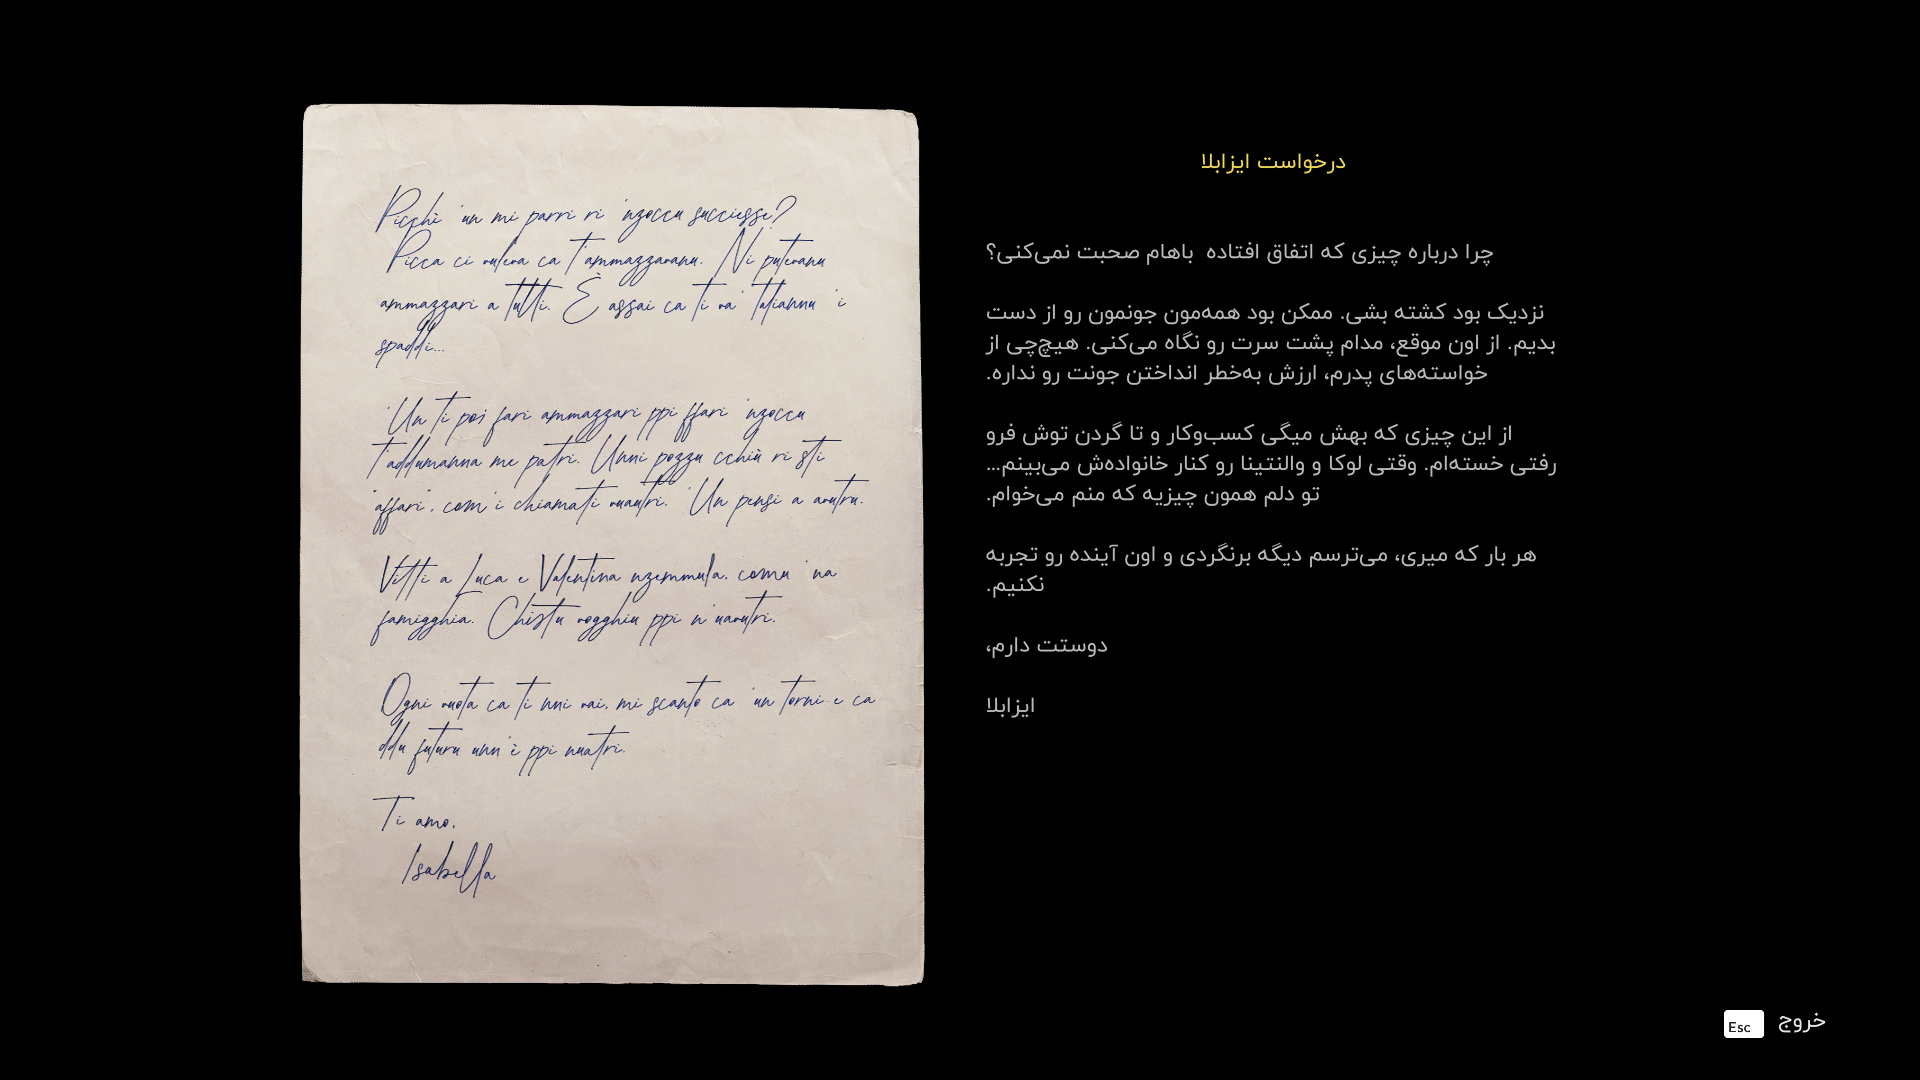 Picchì 'un mi parri ri 'nzoccu successe?
Picca ci vulera ca t'ammazzavanu. Ni puteranu
ammazzari a tutti. È assai ca ti va' taliannu 'i
spaddi...
'Un ti poi fari ammazzari ppi ffari 'nzoccu
t'addumanna me patri. Unni pozzu cchiù ri sti
"affari", com'i chiamati vuautri. 'Un pensi a avutru.
Vitti a Luca e Valentina nzemmula, comu 'na
famigghia. Chistu vogghiu ppi n'uavutri.
Ogni vuota ca ti nni vai, mi scanto ca 'un torni e ca
ddu futuru unn'è ppi nuatri.
Ti amo,
Isabella
درخواست ایزابلا
چرا درباره چیزی که اتفاق افتاده باهام صحبت نمی‌کنی؟
نزدیک بود کشته بشی. ممکن بود همه‌مون جونمون رو از دست
بدیم. از اون موقع، مدام پشت سرت رو نگاه می‌کنی. هیچ‌چی از
خواسته‌های پدرم، ارزش به‌خطر انداختن جونت رو نداره.
از این چیزی که بهش میگی کسب‌وکار و تا گردن توش فرو
رفتی خسته‌ام. وقتی لوکا و والنتینا رو کنار خانواده‌ش می‌بینم...
تو دلم همون چیزیه که منم می‌خوام.
هر بار که میری، می‌ترسم دیگه برنگردی و اون آینده رو تجربه
نکنیم.
دوستت دارم،
ایزابلا
Esc خروج